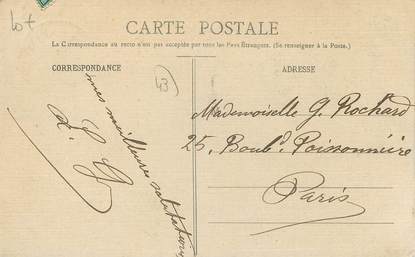 Lot
CARTE POSTALE
La Correspondance au recto n'est pas acceptée par tous les Pays Étrangers. (Se renseigner à la Poste.)
CORRESPONDANCE
43
mes meilleures salutations
L. G
ADRESSE
Mademoiselle G. Rochard
25, Boulᵈ. Poissonnière
Paris